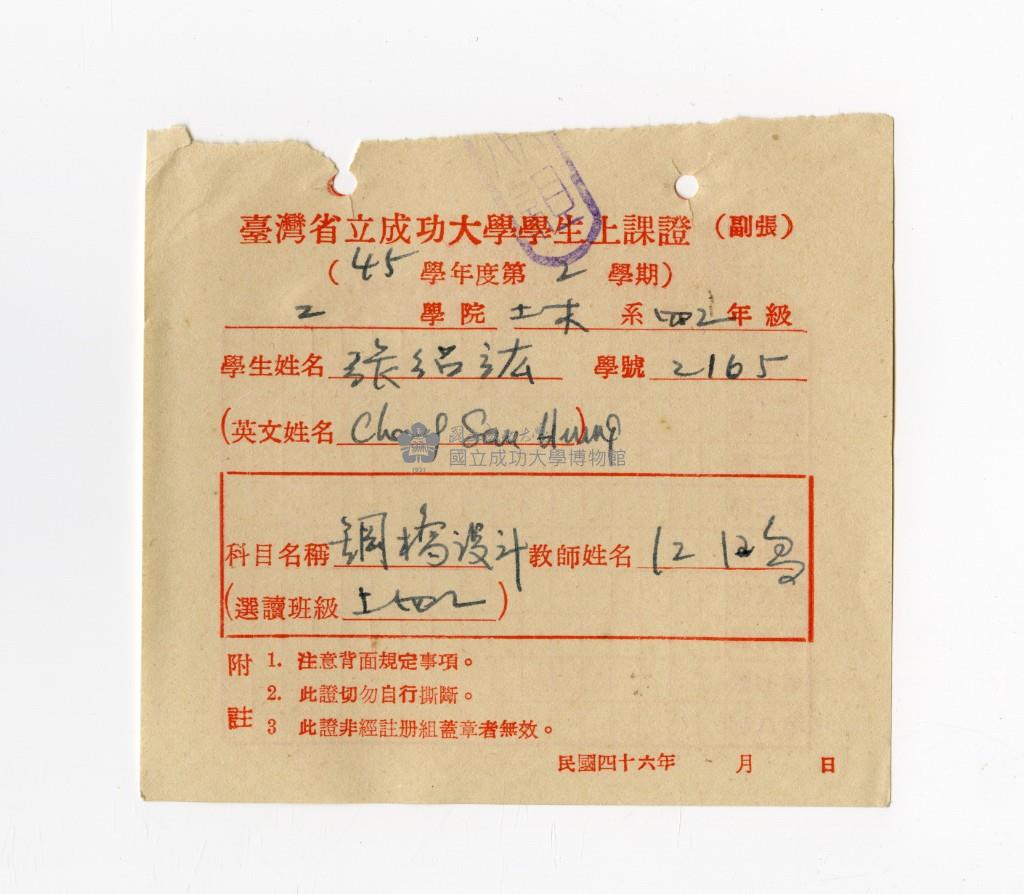 臺灣省立成功大學學生上課證(副張)
(45學年度第2學期)
學院 土木系四2年級
學生姓名 張紹 學號 2165
(英文姓名 Chang San Hung)
國立成功大學
國立成功大學博物館
1931
科目名稱 鋼橋設計 教師姓名
(選讀班級 土四2)
附註
1. 注意背面規定事項。
2. 此證切勿自行撕斷。
3 此證非經註册組蓋章者無效。
民國四十六年 月 日